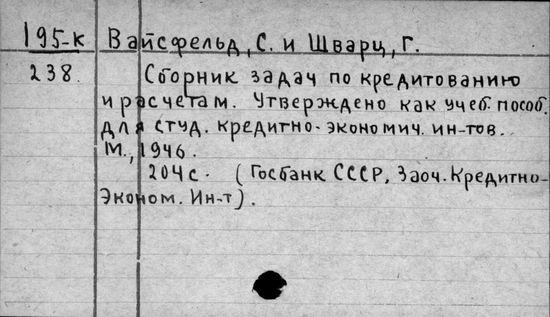 195-к Вайсфельд, С. и Шварц, Г.
238. Сборник задач по кредитованию
и расчетам. Утверждено как учеб. пособ.
для студ. кредитно-экономич. ин-тов.
М., 1946.
204с. (Госбанк СССР, Заоч. Кредитно-
Эконом. Ин-т).